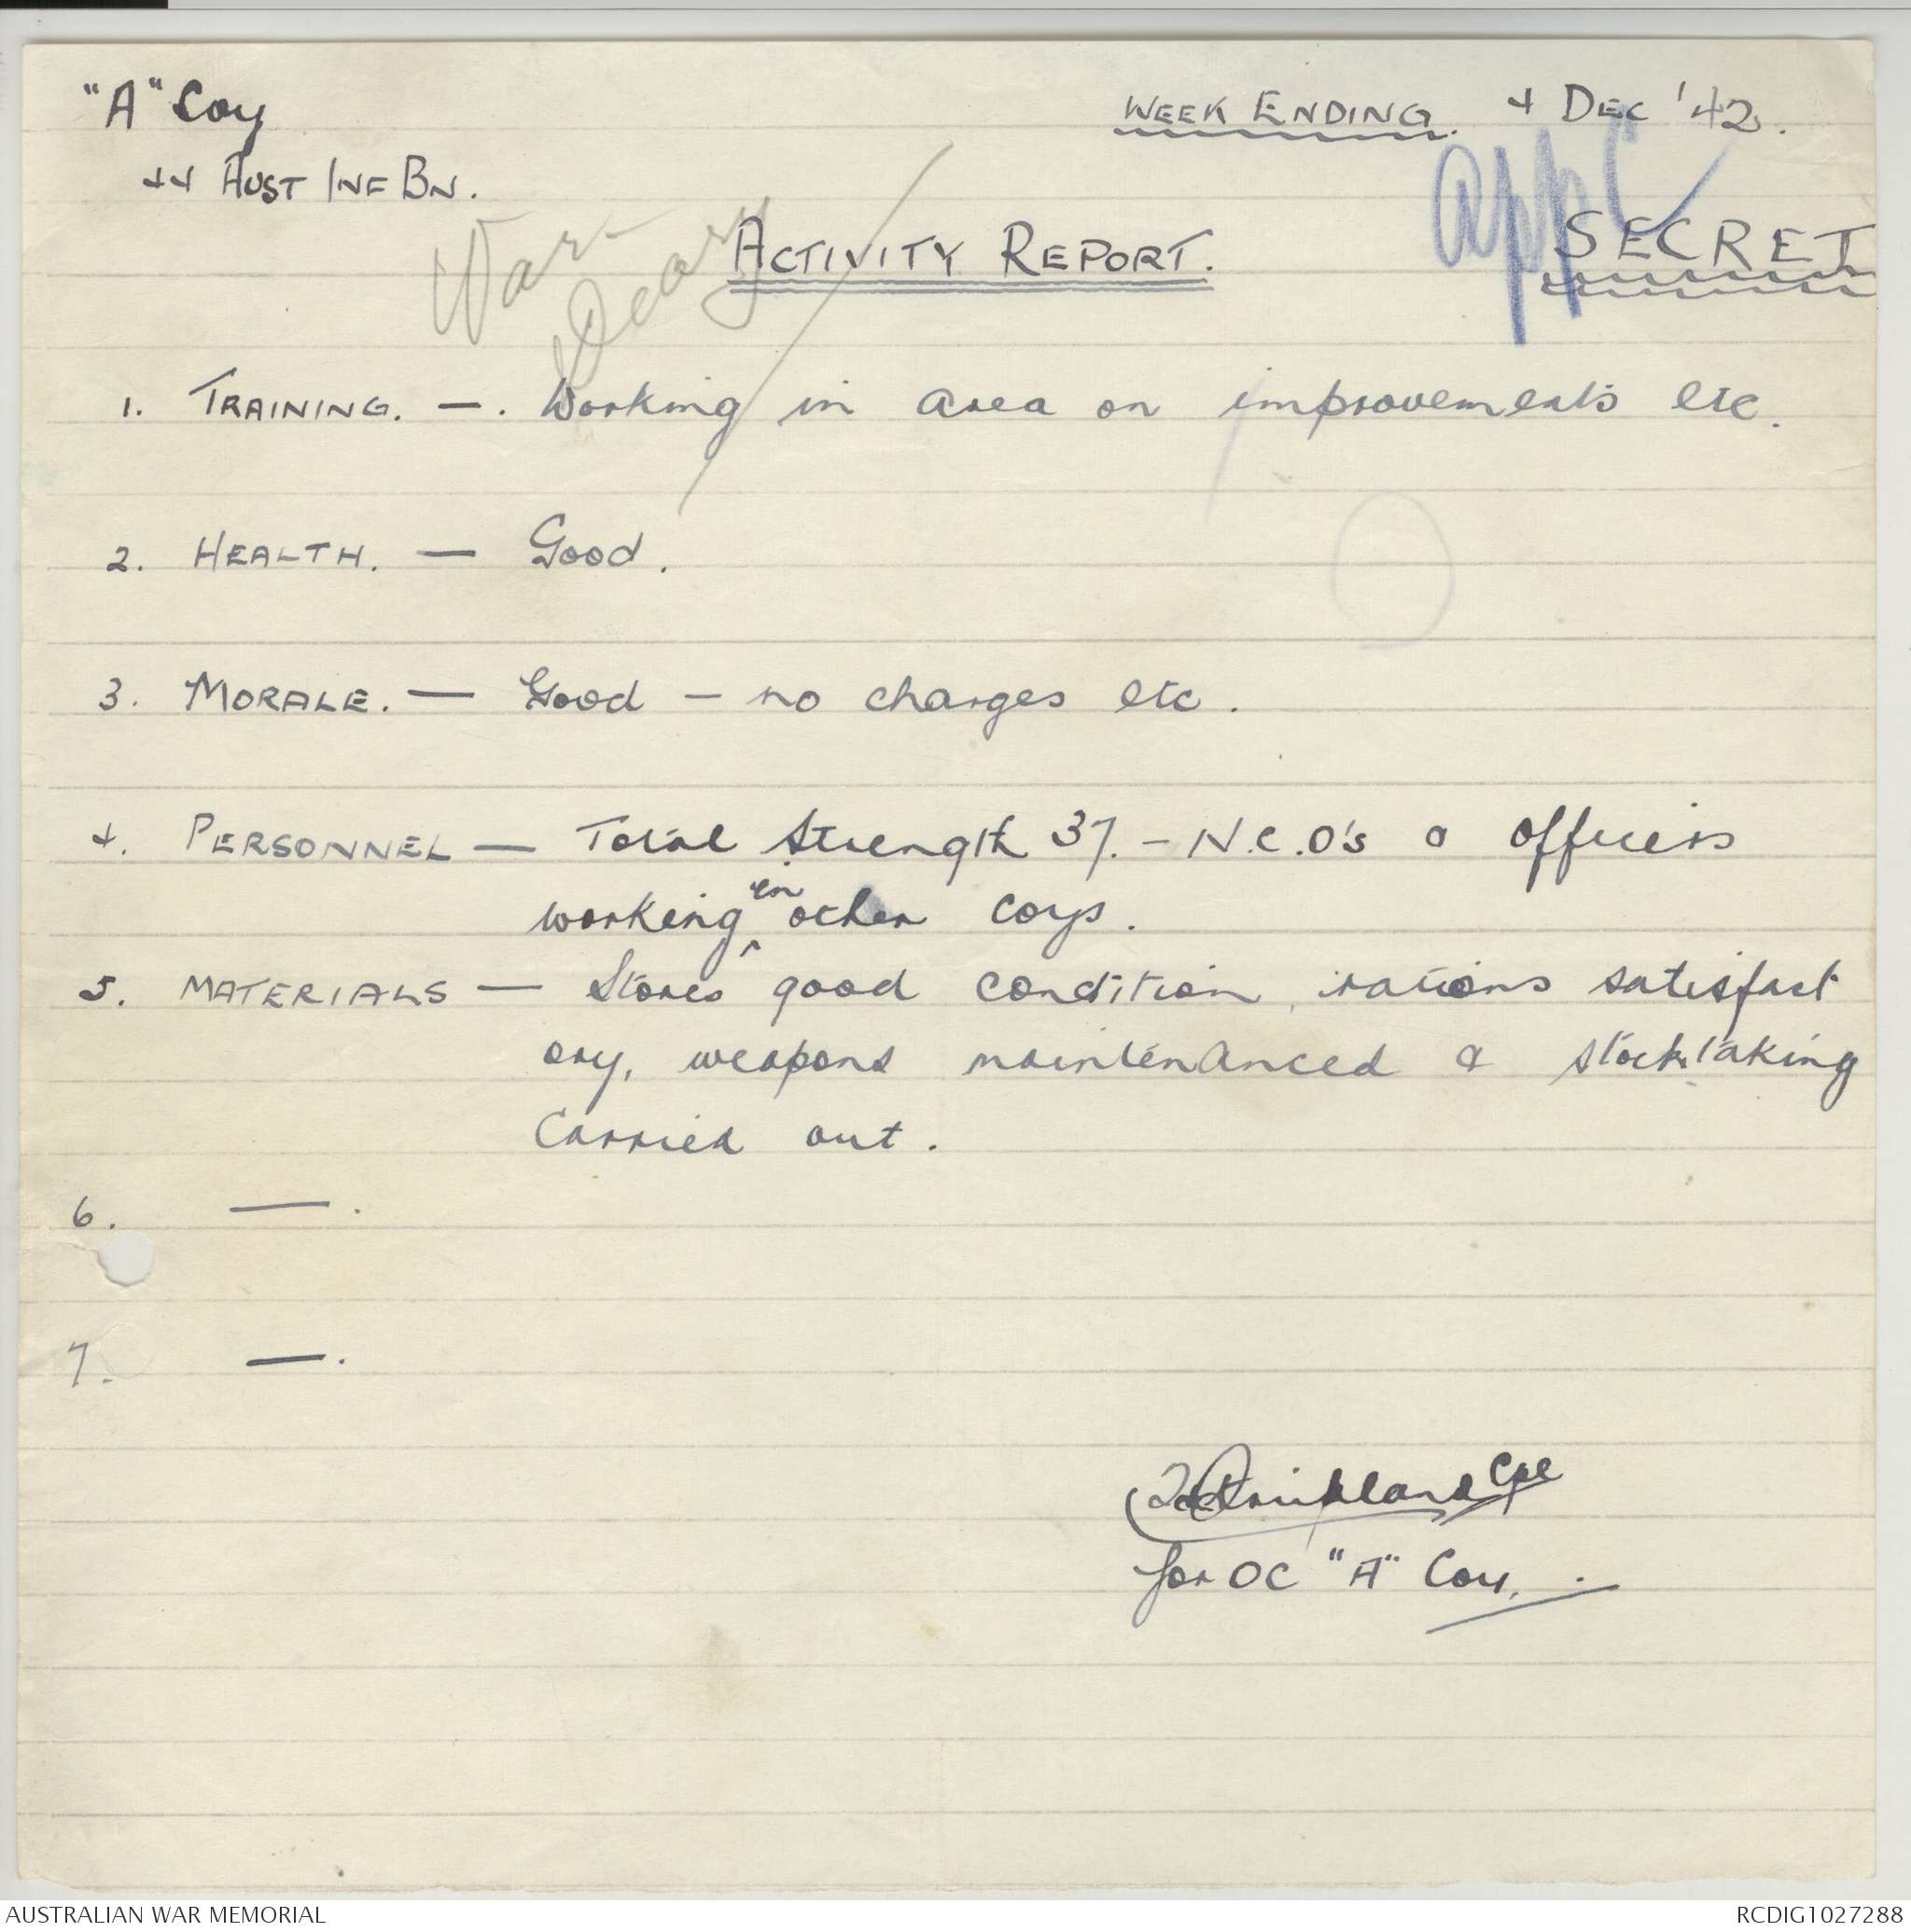 "A" Coy
WEEK ENDING. 4 DEC '42.
44 AUST INF BN.
App C
War Diary
ACTIVITY REPORT.
SECRET
1. TRAINING. —. Working in area on improvements etc.
2. HEALTH. — Good.
3. MORALE. — Good – no charges etc.
4. PERSONNEL — Total Strength 37. – N.C.O's & Officers
working in other coys.
5. MATERIALS — Stores good condition, rations satisfact
ory, weapons maintenanced & stocktaking
Carried out.
6. —.
7. —.
Cpl
for OC "A" Coy.
AUSTRALIAN WAR MEMORIAL
RCDIG1027288